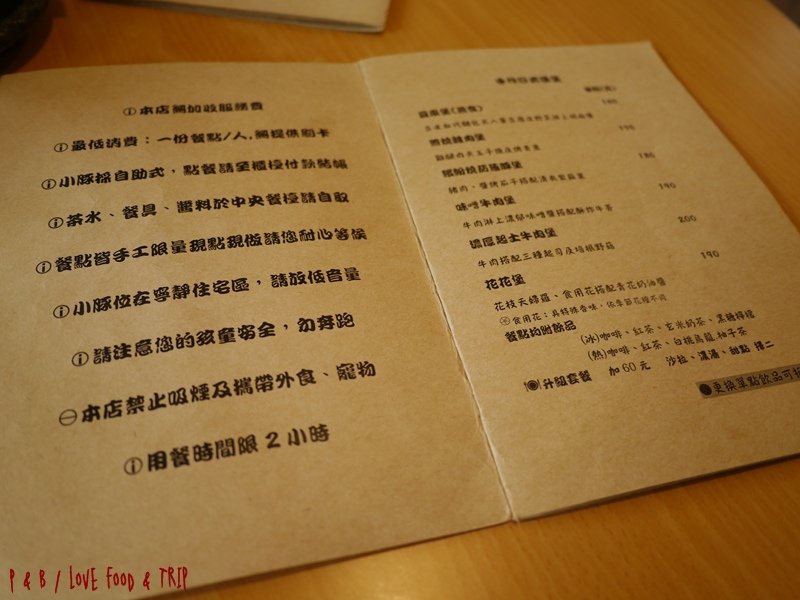 ⓘ本店無加收服務費
ⓘ最低消費：一份餐點/人,無提供刷卡
ⓘ小豚採自助式，點餐請至櫃檯付款結帳
ⓘ茶水、餐具、醬料於中央餐檯請自取
ⓘ餐點皆手工限量現點現做請您耐心等候
ⓘ小豚位在寧靜住宅區，請放低音量
ⓘ請注意您的孩童安全，勿奔跑
⊖本店禁止吸煙及攜帶外食、寵物
ⓘ用餐時間限2小時
180
190
180
味噌牛肉堡 190
牛肉淋上濃郁味噌醬搭配酥炸牛蒡
濃厚起士牛肉堡 200
牛肉搭配三種起司及培根野菇
花花堡 190
花枝天婦羅、食用花搭配青花奶油醬
食用花：具特殊香味，依季節花種不同
餐點均附飲品
(冰)咖啡、紅茶、玄米奶茶、黑糖檸檬
(熱)咖啡、紅茶、白桃烏龍.柚子茶
升級套餐 加60元 沙拉、濃湯、甜點 擇二
●更換單點飲品可折
P & B / LOVE FOOD & TRIP